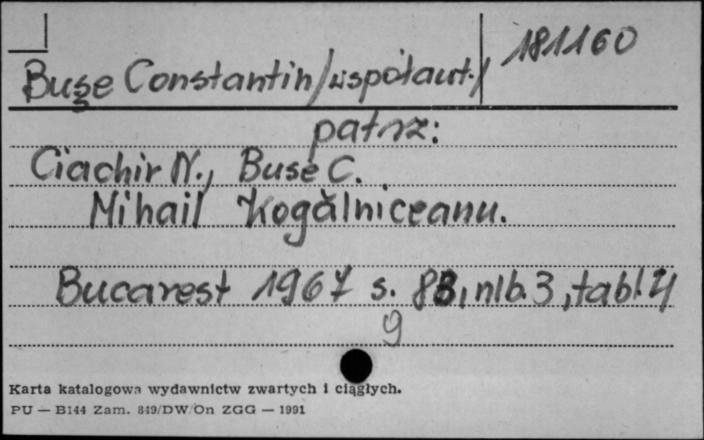 181160
Buşe Constantin /współaut./
patrz:
Ciachir N., Buşe C.
Mihail Kogălniceanu.
Bucarest 1967 s. 83, nlb. 3, tabl. 4
g
Karta katalogowa wydawnictw zwartych i ciągłych.
PU — B144 Zam. 849/DW/On ZGG — 1991